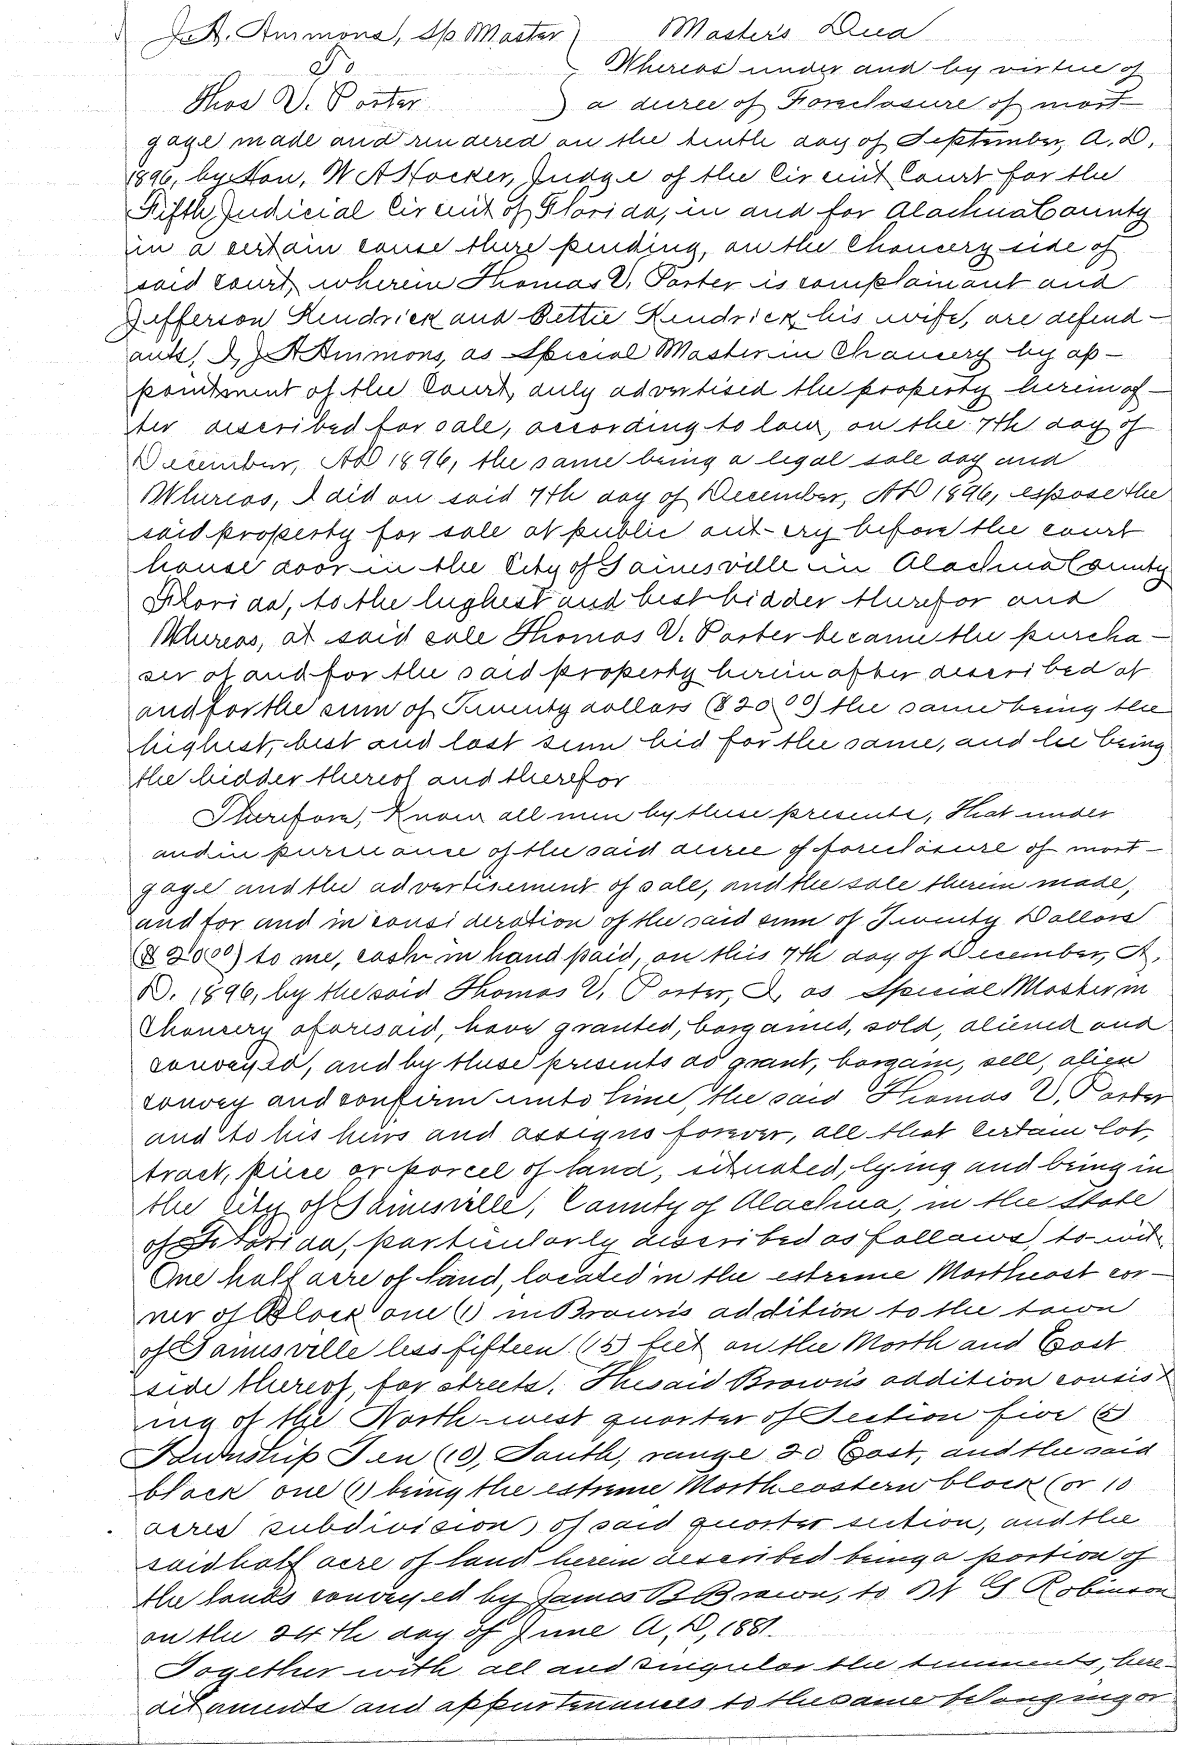 J. A. Ammons, Sp Master ) Master's Deed
To
Whereas under and by virtue of
Thos V. Porter ) a decree of Foreclosure of mort
gage made and rendered on the tenth day of September, A. D.
1896, by Hon, W A Hocker, Judge of the Circuit Court for the
Fifth Judicial Circuit of Florida, in and for Alachua County
in a certain cause there pending, on the Chancery side of
said court, wherein Thomas V. Porter is complainant and
Jefferson Kendrick and Bettie Kendrick his wife, are defend-
ants, I, J A Ammons, as Special Master in Chancery by ap-
pointment of the Court, duly advertised the property hereinaf-
ter described for sale, according to law, on the 7th day of
December, AD 1896, the same being a legal sale day and
Whereas, I did on said 7th day of December, AD 1896, expose the
said property for sale at public out-cry before the court
house door in the City of Gainesville in Alachua County
Florida, to the highest and best bidder therefor and
Whereas, at said sale Thomas V. Porter became the purcha-
ser of and for the said property hereinafter described at
and for the sum of Twenty dollars ($20.00) the same being the
highest, best and last sum bid for the same, and he being
the bidder thereof and therefor
Therefore, Know all men by these presents, That under
and in pursuance of the said decree of foreclosure of mort-
gage and the advertisement of sale, and the sale therein made,
and for and in consideration of the said sum of Twenty Dollars
($20.00) to me, cash in hand paid, on this 7th day of December, A.
D. 1896, by the said Thomas V. Porter, I, as Special Master in
Chancery aforesaid, have granted, bargained, sold, aliened and
conveyed, and by these presents do grant, bargain, sell, alien
convey and confirm unto him, the said Thomas V. Porter
and to his heirs and assigns forever, all that certain lot,
tract, piece or parcel of land, situated, lying and being in
the City of Gainesville, County of Alachua, in the State
of Florida, particularly described as follows, to-wit,
One half acre of land, located in the extreme Northeast cor-
ner of Block one (1) in Brown's addition to the town
of Gainesville less fifteen (15) feet on the North and East
side thereof, for streets. The said Brown's addition consist
ing of the North-west quarter of Section five (5)
Township Ten (10), South, range 20 East, and the said
block one (1) being the extreme Northeastern block (or 10
acres subdivision) of said quarter section, and the
said half acre of land herein described being a portion of
the lands conveyed by James B Brown, to G Robinson
on the 24th day of June A, D, 1881.
Together with all and singular the tenements, here-
ditaments and appurtenances to the same belonging or